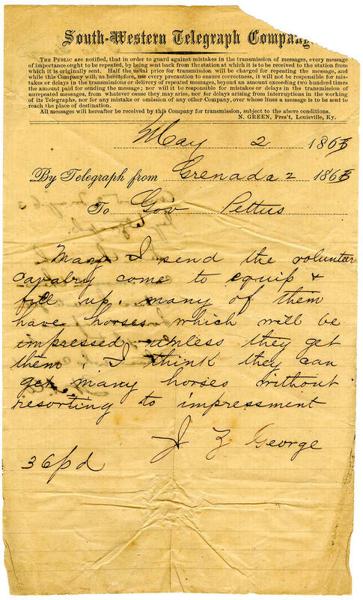 South-Western Telegraph Company
THE PUBLIC are notified, that in order to guard against mistakes in the transmission of messages, every message
of importance ought to be repeated, by being sent back from the station at which it is to be received to the station from
which it is originally sent. Half the usual price for transmission will be charged for repeating the message, and
while this Company will, as heretofore, use every precaution to ensure correctness, it will not be responsible for mis-
takes or delays in the transmission or delivery of repeated messages, beyond an amount exceeding two hundred times
the amount paid for sending the message; nor will it be responsible for mistakes or delays in the transmission of
unrepeated messages, from whatever cause they may arise, nor for delays arising from interruptions in the working
of its Telegraphs, nor for any mistake or omission of any other Company, over whose lines a message is to be sent to
reach the place of destination.
All messages will hereafter be received by this Company for transmission, subject to the above conditions.
N. GREEN, Pres't, Louisville, Ky.
May 2 1863
By Telegraph from Grenada 2 1863
To Gov Pettus
May I send the volunteer
cavalry come to equip &
fill up. many of them
have horses which will be
impressed unless they get
them. I think they can
get many horses without
resorting to impressment
J Z George
36 pd